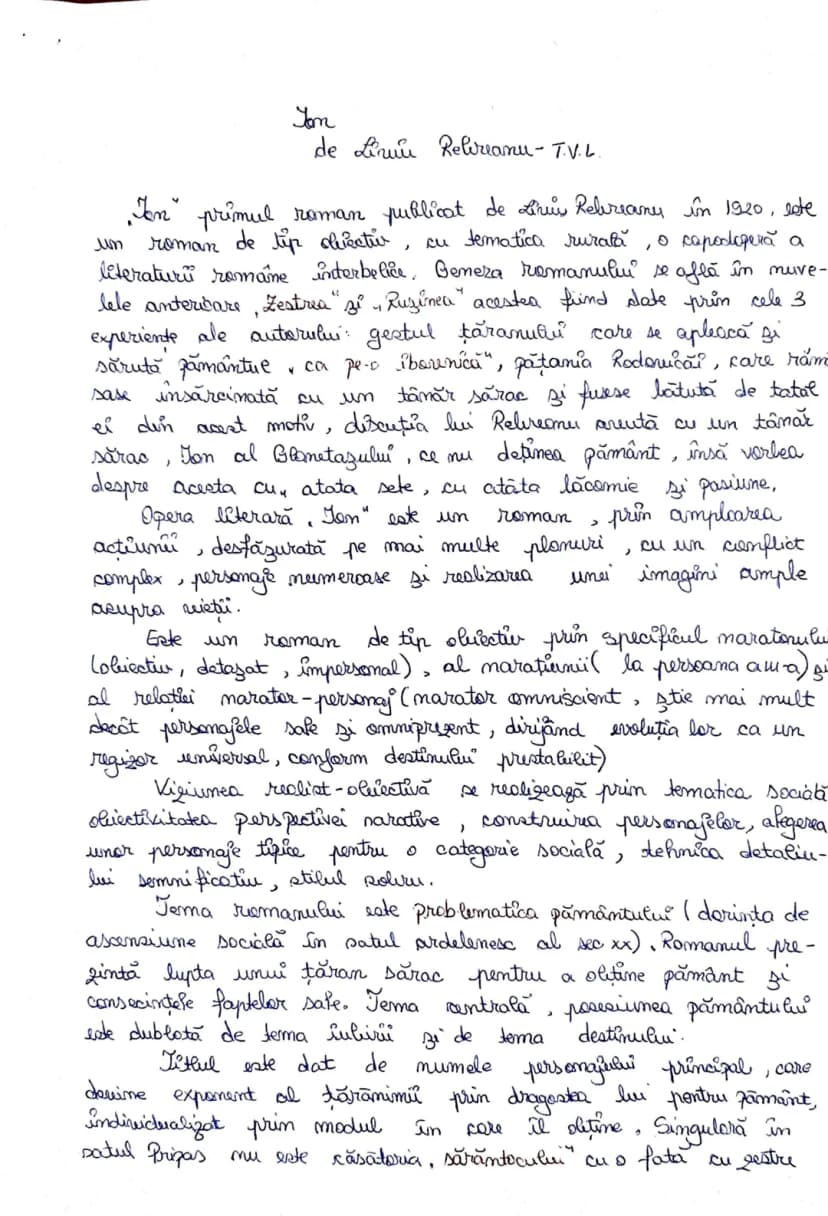 Ion
de Liviu Rebreanu - T.V.L.
„Ion" primul roman publicat de Liviu Rebreanu în 1920, este
un roman de tip obiectiv, cu tematica rurală, o capodoperă a
literaturii române interbelice. Geneza romanului se află în nuve-
lele anterioare „Zestrea" și „Rușinea" acestea fiind date prin cele 3
experiențe ale autorului: gestul țăranului care se apleacă și
sărută pământul „ca pe-o ibovnică", pățania Rodovicăi, care rămă
sase însărcinată cu un tânăr sărac și fusese bătută de tatăl
ei din acest motiv, discuția lui Rebreanu avută cu un tânăr
sărac, Ion al Glanetașului, ce nu deținea pământ, însă vorbea
despre acesta cu „atata sete, cu atâta lăcomie și pasiune.
Opera literară „Ion" este un roman, prin amploarea
acțiunii, desfăzurată pe mai multe planuri, cu un conflict
complex, personaje numeroase și realizarea unei imagini ample
asupra vieții.
Este un roman de tip obiectiv prin specificul naratorului
(obiectiv, detașat, impersonal), al narațiunii (la persoana a III-a) și
al relației narator-personaj (narator omniscient, știe mai mult
decât personajele sale și omniprezent, dirijând evoluția lor ca un
regizor universal, conform destinului prestabilit)
Viziunea realist-obiectivă se realizează prin tematica socială
obiectivitatea perspectivei narative, construirea personajelor, alegerea
unor personaje tipice pentru o categorie socială, tehnica detaliu-
lui semnificativ, stilul sobru.
Tema romanului este problematica pământului (dorința de
ascensiune socială în satul ardelenesc al sec XX). Romanul pre-
zintă lupta unui țăran sărac pentru a obține pământ și
consecințele faptelor sale. Tema centrală, posesiunea pământului
este dublată de tema iubirii și de tema destinului.
Titlul este dat de numele personajului principal, care
devine exponent al țărănimii prin dragostea lui pentru pământ,
individualizat prin modul în care îl obține. Singulară în
satul Pripas nu este căsătoria „sărăntocului" cu o fată cu zestre